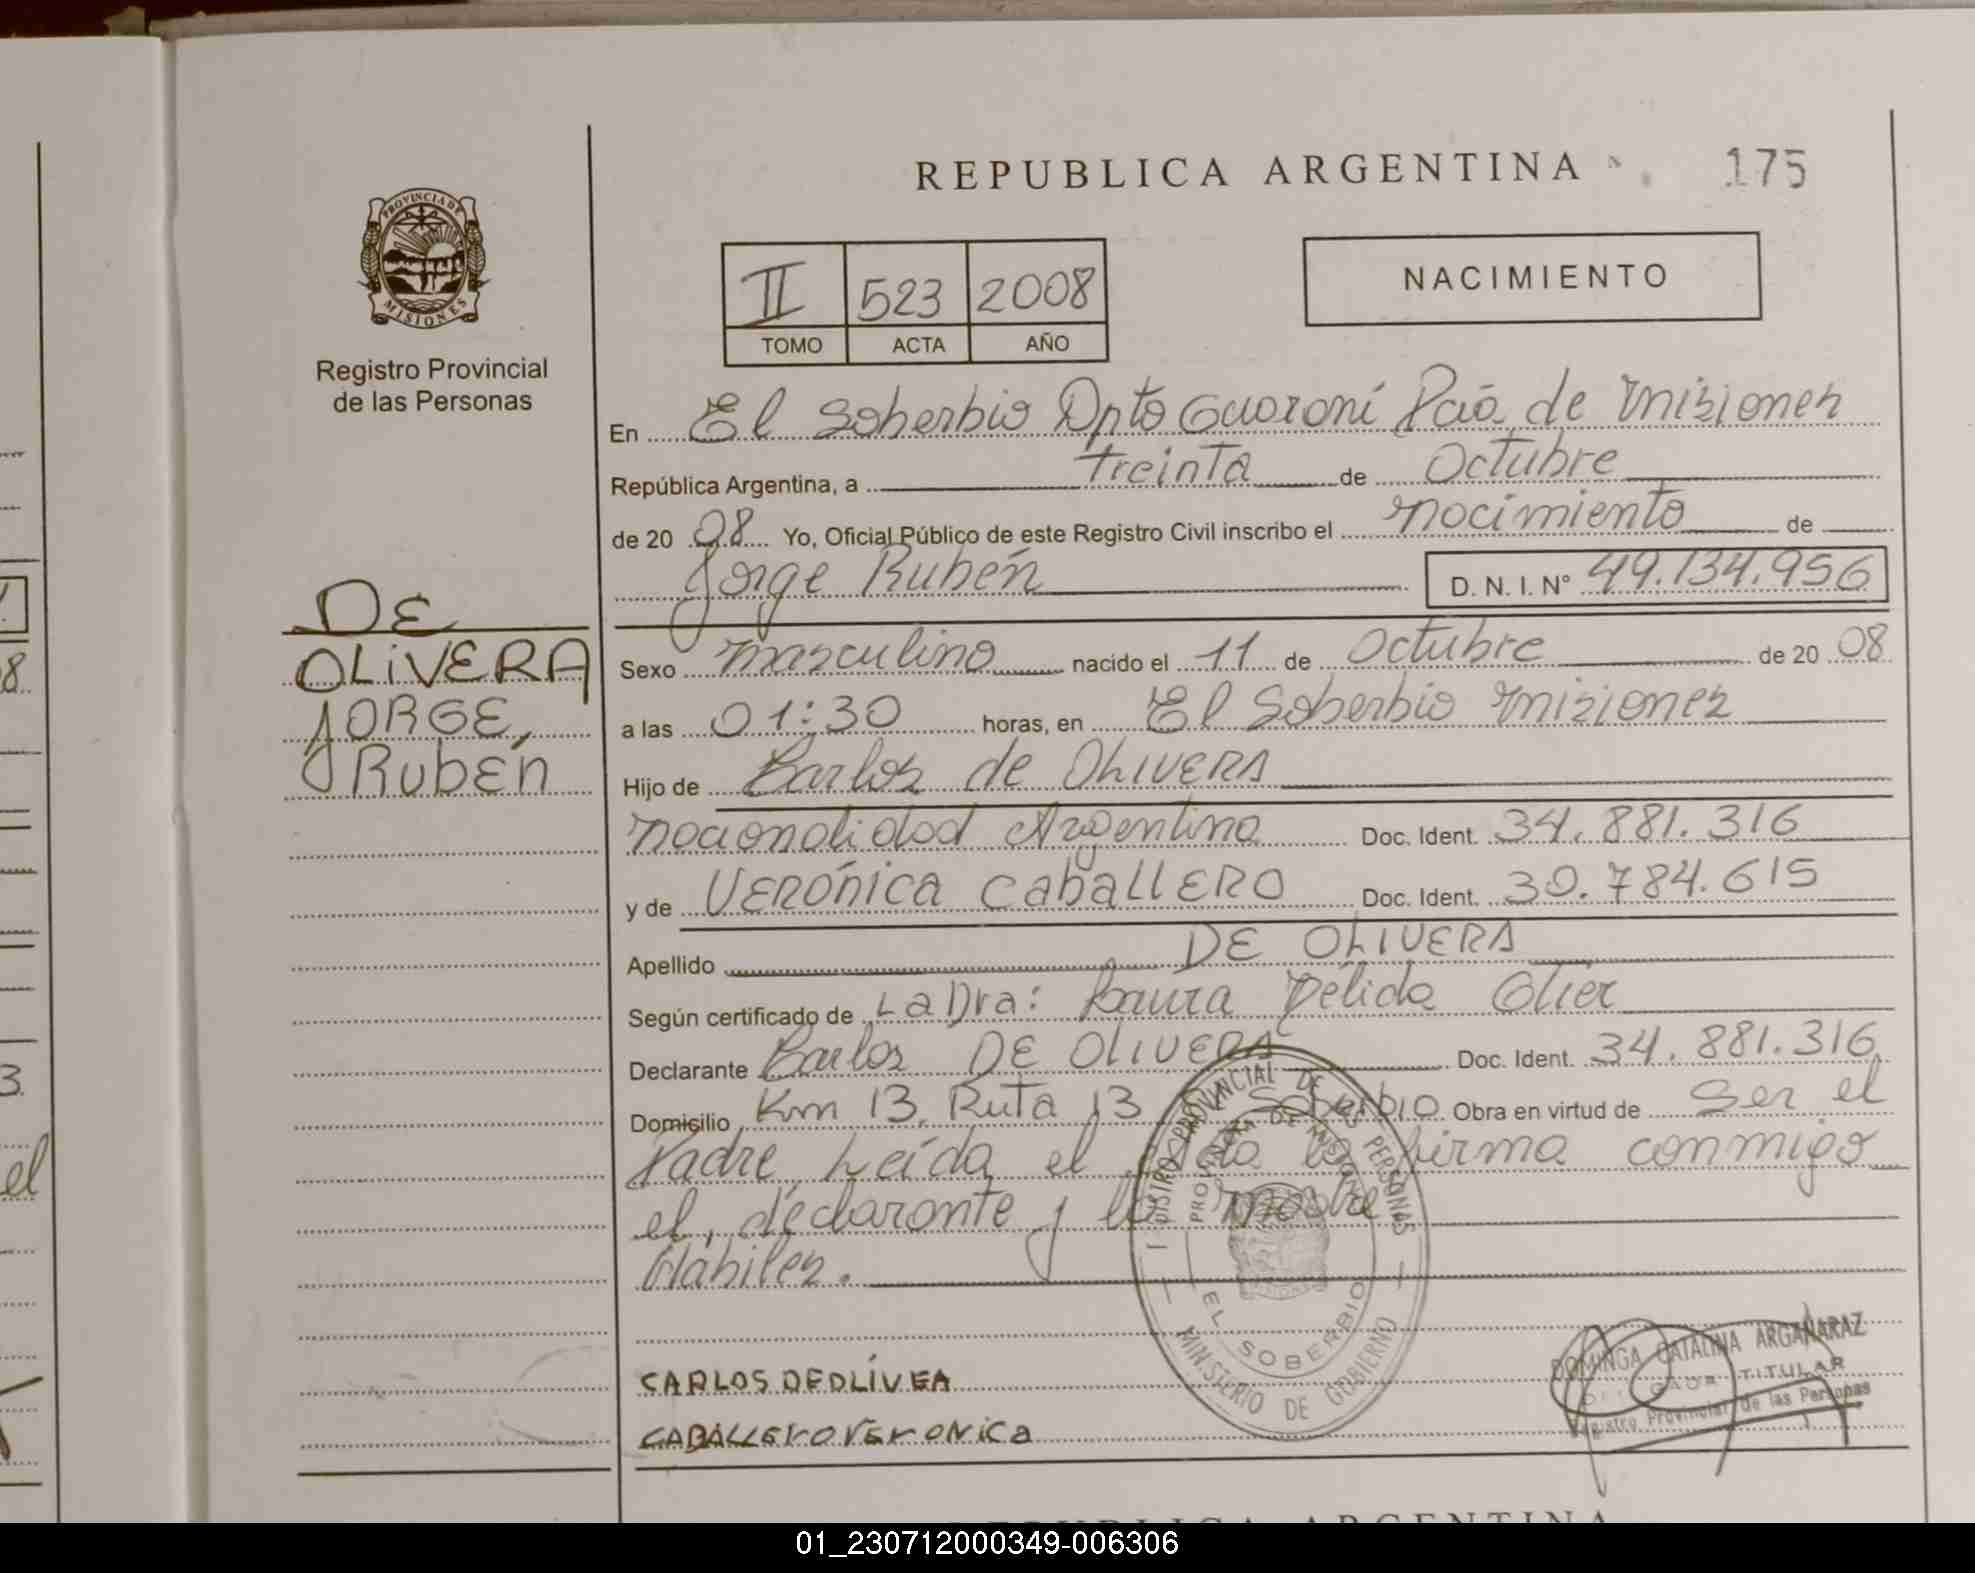 REPUBLICA ARGENTINA
175
PROVINCIA DE
MISIONES
Registro Provincial
de las Personas
II 523 2008
TOMO ACTA AÑO
NACIMIENTO
En El Soberbio Dpto Guaraní Pcia de Misiones
República Argentina, a treinta de Octubre
de 20 08 Yo, Oficial Público de este Registro Civil inscribo el nacimiento de
Jorge Rubén D. N. I. Nº 49.134.956
DE
OLIVERA
JORGE,
RUBÉN
Sexo masculino nacido el 11 de Octubre de 20 08
a las 01:30 horas, en El Soberbio Misiones
Hijo de Carlos de OLIVERA
nacionalidad Argentina Doc. Ident. 34.881.316
y de VERÓNICA CABALLERO Doc. Ident. 30.784.615
Apellido DE OLIVERA
Según certificado de La Dra: Laura Délida
Declarante Carlos DE OLIVERA Doc. Ident. 34.881.316
Domicilio Km 13, Ruta 13 Soberbio Obra en virtud de Ser el
Padre, Leída el Acta la firma conmigo
el, declarante y la madre
Hábiles.
PROVINCIAL DE LAS PERSONAS
PROVINCIA DE MISIONES
EL SOBERBIO
MINISTERIO DE GOBIERNO
CARLOS DEOLÍVEA
CABALLERO VERONICA
DOMINGA CATALINA ARGAÑARAZ
TITULAR
Registro Provincial de las Personas
8
3.
el
REPUBLICA ARGENTINA
01_230712000349-006306